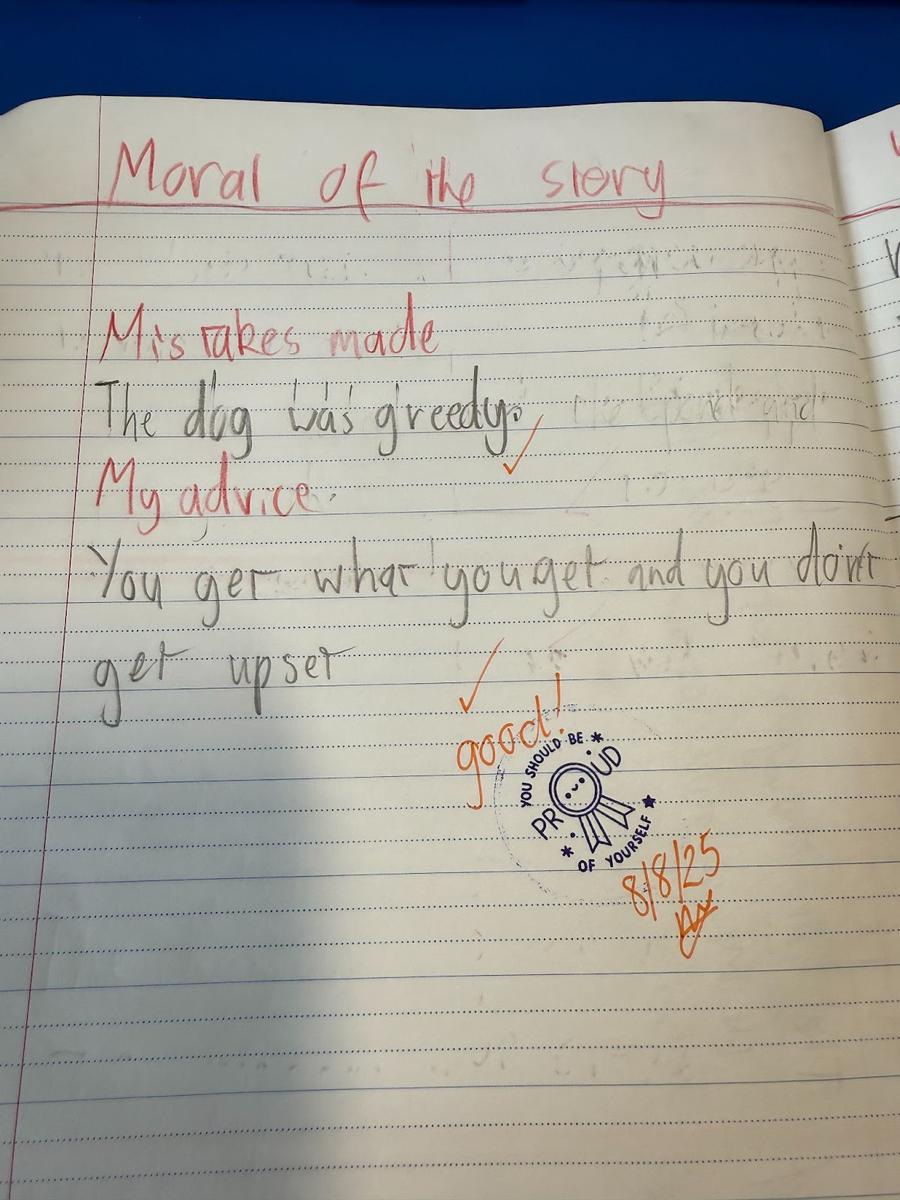 Moral of the story
Mistakes made
The dog was greedy.
My advice.
You get what you get and you don't
get upset
good!
YOU SHOULD BE
PROUD
OF YOURSELF
8/8/25